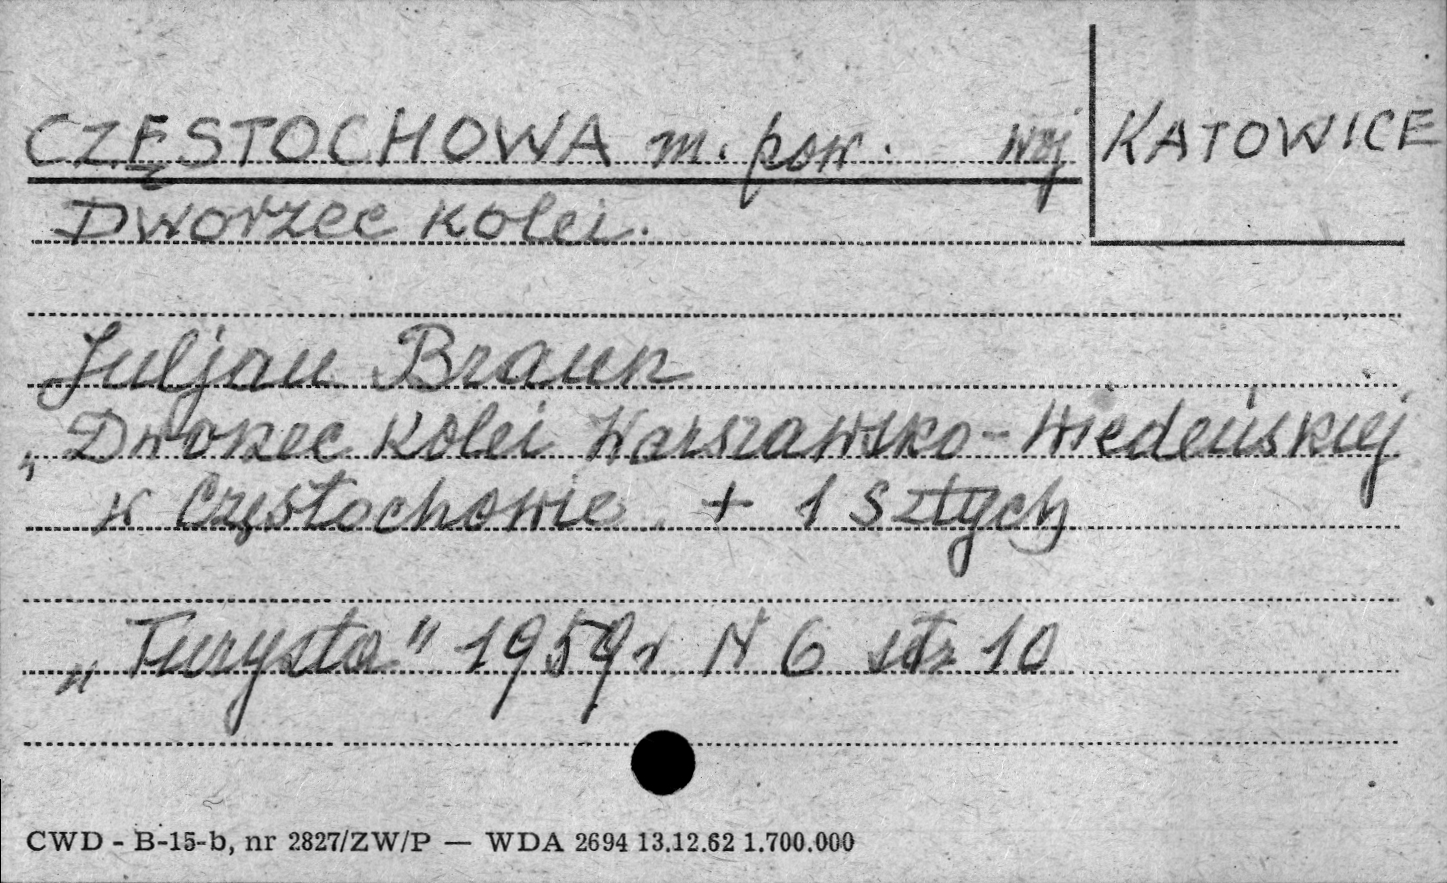 CZĘSTOCHOWA m. pow. woj KATOWICE
Dworzec kolei.
Juljan Braun
„Dworzec Kolei Warszawsko-Wiedeńskiej
w Częstochowie. + 1 sztych
„Turysta" 1959 r N 6 str 10
CWD - B-15-b, nr 2827/ZW/P — WDA 2694 13.12.62 1.700.000